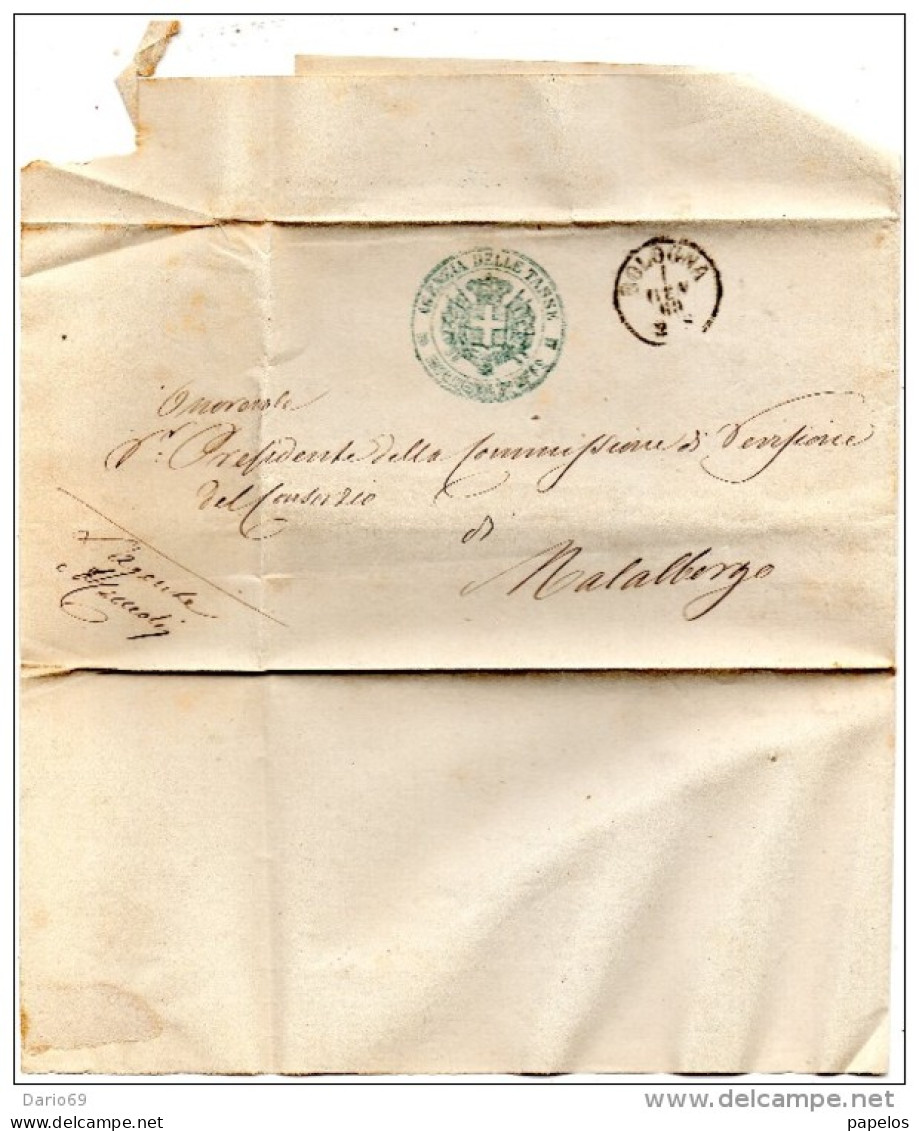 AGENZIA DELLE TASSE
BOLOGNA
1
GEN
69
Onorevole
Sr. Presidente della Commissione di Revisione
del Consorzio
di
Malalbergo
L'Agente
Dario69
delcampe.net
papelos